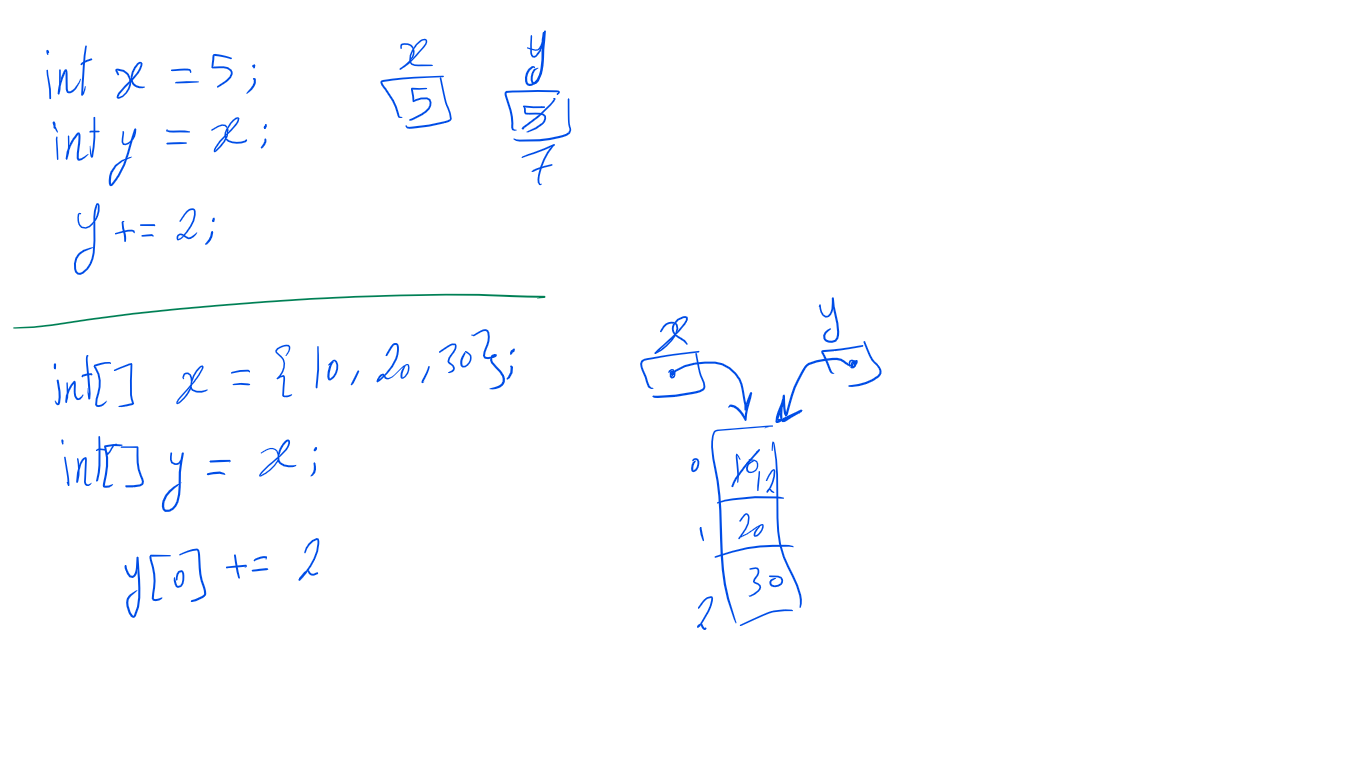 int x = 5;
int y = x;
y += 2;
x y
5 5
7
int[] x = {10, 20, 30};
int[] y = x;
y[0] += 2
x y
0 10 12
1 20
2 30